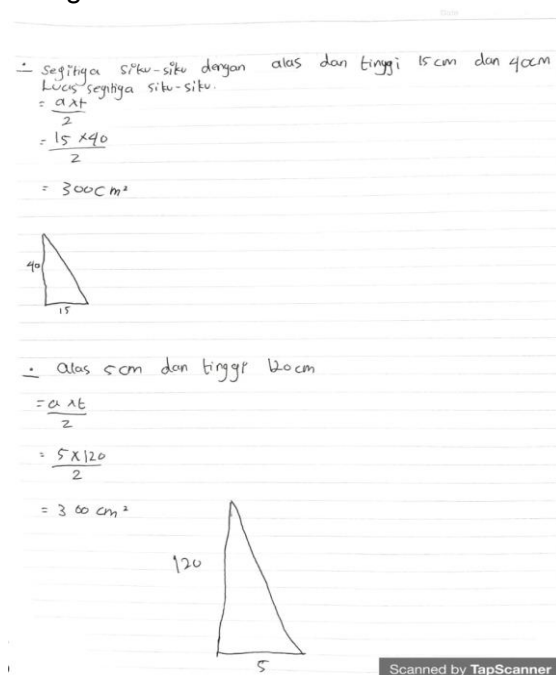 ∸ segitiga siku-siku dengan alas dan tinggi 15 cm dan 40cm
Luas segitiga siku-siku.
= a x t
2
= 15 x 40
2
= 300 cm²
40
15
∸ alas 5 cm dan tinggi 120 cm
= a x t
2
= 5 x 120
2
= 300 cm²
120
5
Scanned by TapScanner